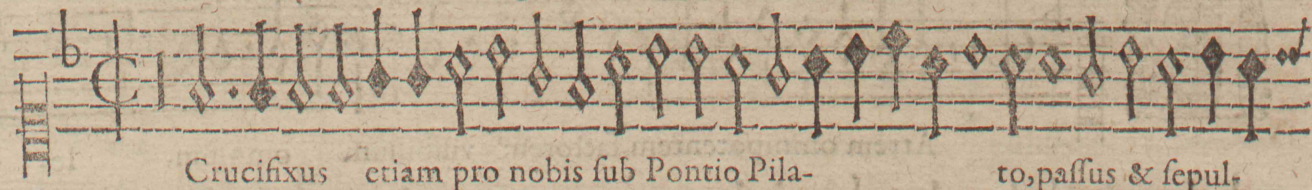 Crucifixus etiam pro nobis ſub Pontio Pila- to,paſſus & ſepul-